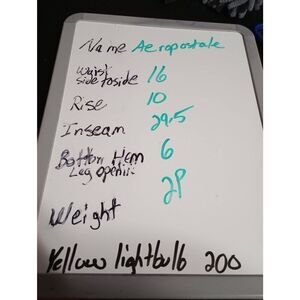 Name Aeropostale
Waist
side to side 16
Rise 10
Inseam 29.5
Bottom Hem 6
Leg openin
Weight
Yellow lightbulb 200